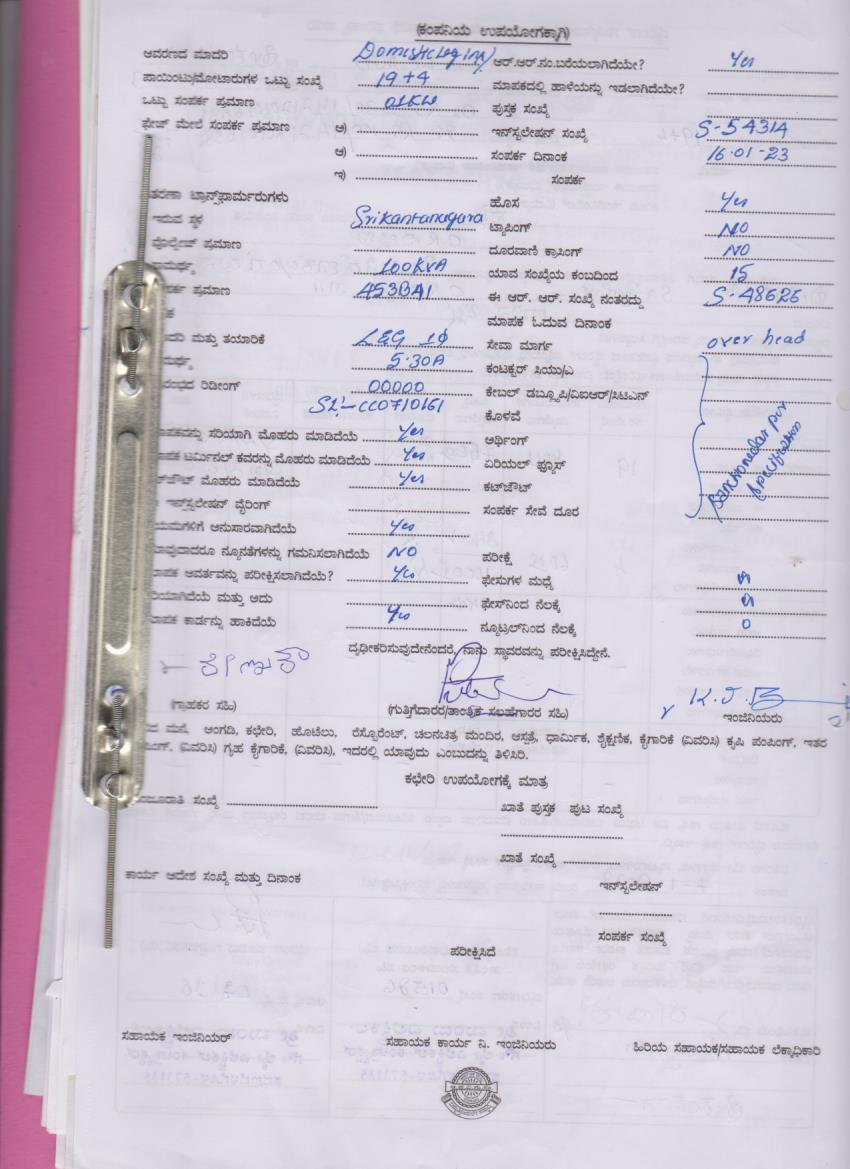 (ಕಂಪನಿಯ ಉಪಯೋಗಕ್ಕಾಗಿ)
ಆವರಣದ ಮಾದರಿ Domestic Lighting ಆರ್.ಆರ್.ನಂ.ಬರೆಯಲಾಗಿದೆಯೇ? Yes
ಪಾಯಿಂಟು/ಮೋಟಾರುಗಳ ಒಟ್ಟು ಸಂಖ್ಯೆ 19+4 ಮಾಪಕದಲ್ಲಿ ಹಾಳೆಯನ್ನು ಇಡಲಾಗಿದೆಯೇ?
ಒಟ್ಟು ಸಂಪರ್ಕ ಪ್ರಮಾಣ 01KW ಪುಸ್ತಕ ಸಂಖ್ಯೆ
ಫೇಜ್ ಮೇಲೆ ಸಂಪರ್ಕ ಪ್ರಮಾಣ ಅ) ಇನ್‌ಸ್ಟಲೇಷನ್ ಸಂಖ್ಯೆ S-54314
ಆ) ಸಂಪರ್ಕ ದಿನಾಂಕ 16-01-23
ಇ) ಸಂಪರ್ಕ
ತರಣಾ ಟ್ರಾನ್ಸ್‌ಫಾರ್ಮರುಗಳು ಹೊಸ Yes
ಇರುವ ಸ್ಥಳ Srikantanagara ಟ್ಯಾಪಿಂಗ್ NO
ವೋಲ್ಟೇಜ್ ಪ್ರಮಾಣ ದೂರವಾಣಿ ಕ್ರಾಸಿಂಗ್ NO
ಸಾಮರ್ಥ್ಯ 100KVA ಯಾವ ಸಂಖ್ಯೆಯ ಕಂಬದಿಂದ 15
ಪರ್ಕ ಪ್ರಮಾಣ 453BA1 ಈ ಆರ್. ಆರ್. ಸಂಖ್ಯೆ ನಂತರದ್ದು S-48626
ಮಾಪಕ ಓದುವ ದಿನಾಂಕ
ದರಿ ಮತ್ತು ತಯಾರಿಕೆ L&G 1ф ಸೇವಾ ಮಾರ್ಗ over head
ಮರ್ಥ್ಯ 5-30A ಕಂಟಕ್ಟರ್ ಸಿಯು/ಎ
ರಂಭದ ರಿಡೀಂಗ್ 00000 ಕೇಬಲ್ ಡಬ್ಲ್ಯೂಪಿ/ವಿಐಆರ್/ಸಿಟಿಎನ್
SL:-CC0710161 ಕೊಳವೆ
ಾಪಕವನ್ನು ಸರಿಯಾಗಿ ಮೊಹರು ಮಾಡಿದೆಯೆ Yes ಆರ್ಥಿಂಗ್
ಾಪಕ ಟರ್ಮಿನಲ್ ಕವರನ್ನು ಮೊಹರು ಮಾಡಿದೆಯೆ Yes ಏರಿಯಲ್ ಫ್ಯೂಸ್
ಟ್‌ಔಟ್ ಮೊಹರು ಮಾಡಿದೆಯೆ Yes ಕಟ್‌ಔಟ್
ಇನ್‌ಸ್ಟಲೇಷನ್ ವೈರಿಂಗ್ ಸಂಪರ್ಕ ಸೇವೆ ದೂರ
ಯಮಗಳಿಗೆ ಅನುಸಾರವಾಗಿದೆಯೆ Yes
ಾವುದಾದರೂ ನ್ಯೂನತೆಗಳನ್ನು ಗಮನಿಸಲಾಗಿದೆಯೆ NO ಪರೀಕ್ಷೆ
ಾಪಕ ಆವರ್ತವನ್ನು ಪರೀಕ್ಷಿಸಲಾಗಿದೆಯೆ? Yes ಫೇಸುಗಳ ಮಧ್ಯೆ
ರಿಯಾಗಿದೆಯೆ ಮತ್ತು ಅದು ಫೇಸ್‌ನಿಂದ ನೆಲಕ್ಕೆ
ಾಪಕ ಕಾರ್ಡನ್ನು ಹಾಕಿದೆಯೆ Yes ನ್ಯೂಟ್ರಲ್‌ನಿಂದ ನೆಲಕ್ಕೆ 0
ದೃಢೀಕರಿಸುವುದೇನೆಂದರೆ, ನಾನು ಸ್ಥಾವರವನ್ನು ಪರೀಕ್ಷಿಸಿದ್ದೇನೆ.
(ಗ್ರಾಹಕರ ಸಹಿ) (ಗುತ್ತಿಗೆದಾರರ/ತಾಂತ್ರಿಕ ಸಲಹೆಗಾರರ ಸಹಿ) ಇಂಜಿನಿಯರು
ಮನೆ, ಅಂಗಡಿ, ಕಛೇರಿ, ಹೊಟೇಲು, ರೆಸ್ಟೋರೆಂಟ್, ಚಲನಚಿತ್ರ ಮಂದಿರ, ಆಸ್ಪತ್ರೆ, ಧಾರ್ಮಿಕ, ಶೈಕ್ಷಣಿಕ, ಕೈಗಾರಿಕೆ (ವಿವರಿಸಿ) ಕೃಷಿ ಪಂಪಿಂಗ್, ಇತರ
ಪಿಂಗ್, (ವಿವರಿಸಿ) ಗೃಹ ಕೈಗಾರಿಕೆ, (ವಿವರಿಸಿ), ಇದರಲ್ಲಿ ಯಾವುದು ಎಂಬುದನ್ನು ತಿಳಿಸಿರಿ.
ಕಛೇರಿ ಉಪಯೋಗಕ್ಕೆ ಮಾತ್ರ
ಂಜೂರಾತಿ ಸಂಖ್ಯೆ ಖಾತೆ ಪುಸ್ತಕ ಪುಟ ಸಂಖ್ಯೆ
ಖಾತೆ ಸಂಖ್ಯೆ
ಕಾರ್ಯ ಆದೇಶ ಸಂಖ್ಯೆ ಮತ್ತು ದಿನಾಂಕ ಇನ್‌ಸ್ಟಲೇಷನ್
ಸಂಪರ್ಕ ಸಂಖ್ಯೆ
ಪರೀಕ್ಷಿಸಿದೆ
ಸಹಾಯಕ ಇಂಜಿನಿಯರ್ ಸಹಾಯಕ ಕಾರ್ಯ ನಿ. ಇಂಜಿನಿಯರು ಹಿರಿಯ ಸಹಾಯಕ/ಸಹಾಯಕ ಲೆಕ್ಕಾಧಿಕಾರಿ